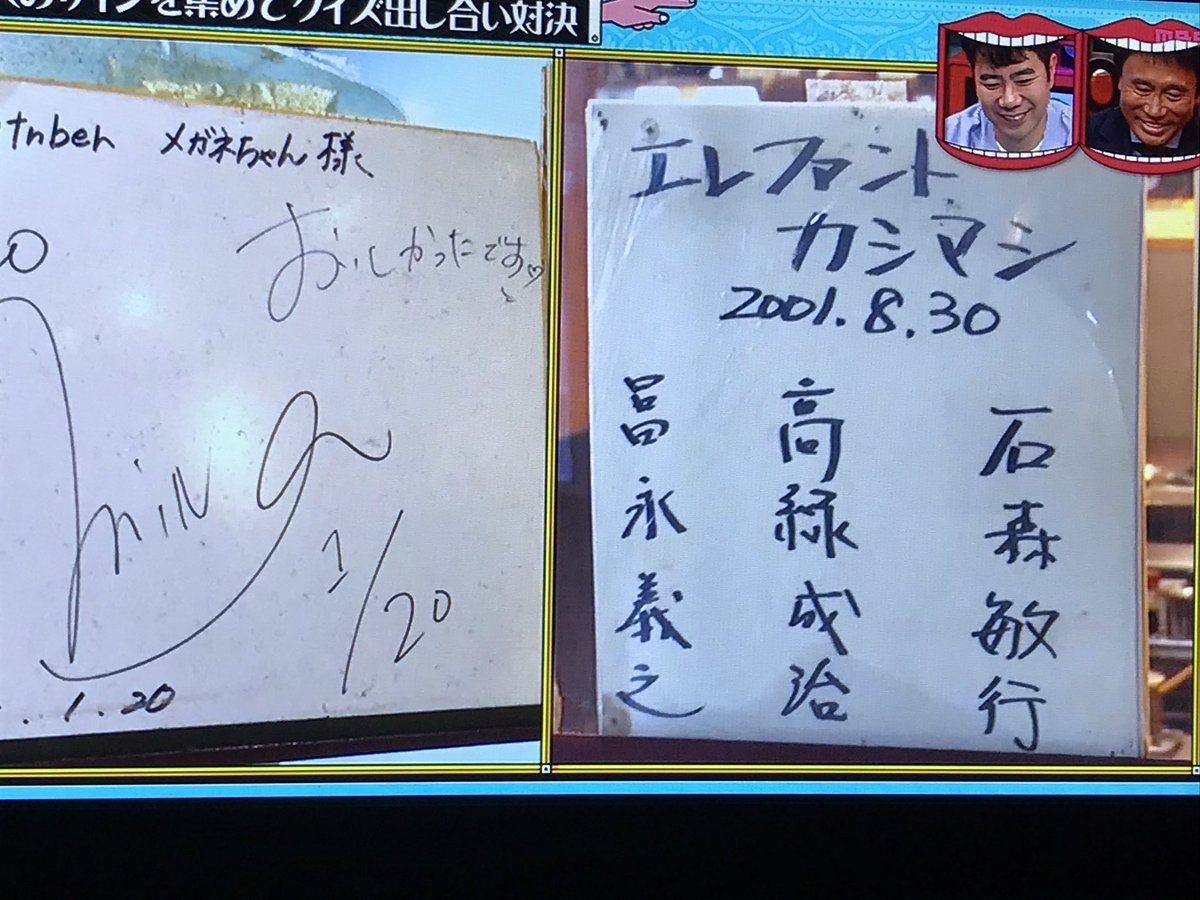 のサインを集めてクイズ出し合い対決
メガネちゃん様
おいしかったです♡
1/20
.1.20
エレファント
カシマシ
2001.8.30
石森敏行
高緑成治
冨永義之